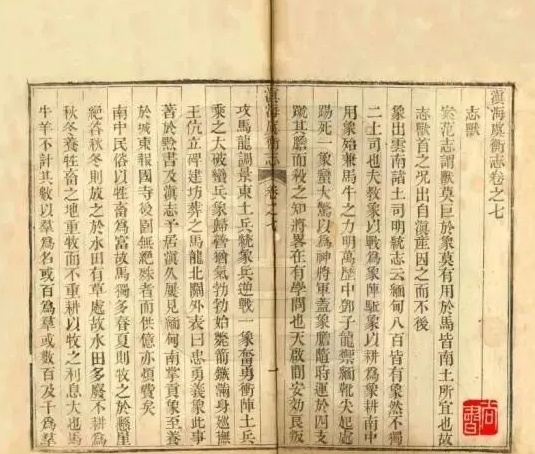 滇海虞衡志卷之七
志獸
案范志謂獸莫巨於象莫有用於馬皆南土所宜也故
志獸首之况出自滇產因之而不後
象出雲南諸土司明統志云緬甸八百皆有象然不獨
二土司也夫敎象以戰爲象陣駈象以耕爲象耕南中
用象殆兼馬牛之力明萬歷中鄧子龍禦緬靴尖起處
踢死一象蠻大驚以爲神將軍蓋象膽隨時運於四支
蹴其膽而殺之知將畧在有學問也天啟間安効良叛
滇海虞衡志 卷之七 一
攻馬龍調景東土兵統象兵逆戰一象奮勇衝陣土兵
乘之大破蠻兵象歸營猶氣勃勃始斃箭鏃滿身巡撫
王伉立碑建坊葬之馬龍北關外表曰忠勇義象此事
著於黔書及滇志予居滇久屢見緬甸南掌貢象至養
於城東報國寺後園無絶殊者而供億亦煩費矣
南中民俗以牲畜爲富故馬獨多春夏則牧之於懸崖
絶谷秋冬則放之於水田有草處故水田多廢不耕爲
秋冬養牲畜之地重牧而不重耕以牧之利息大也馬
牛羊不計其數以羣爲名或百爲羣或數百及千爲羣